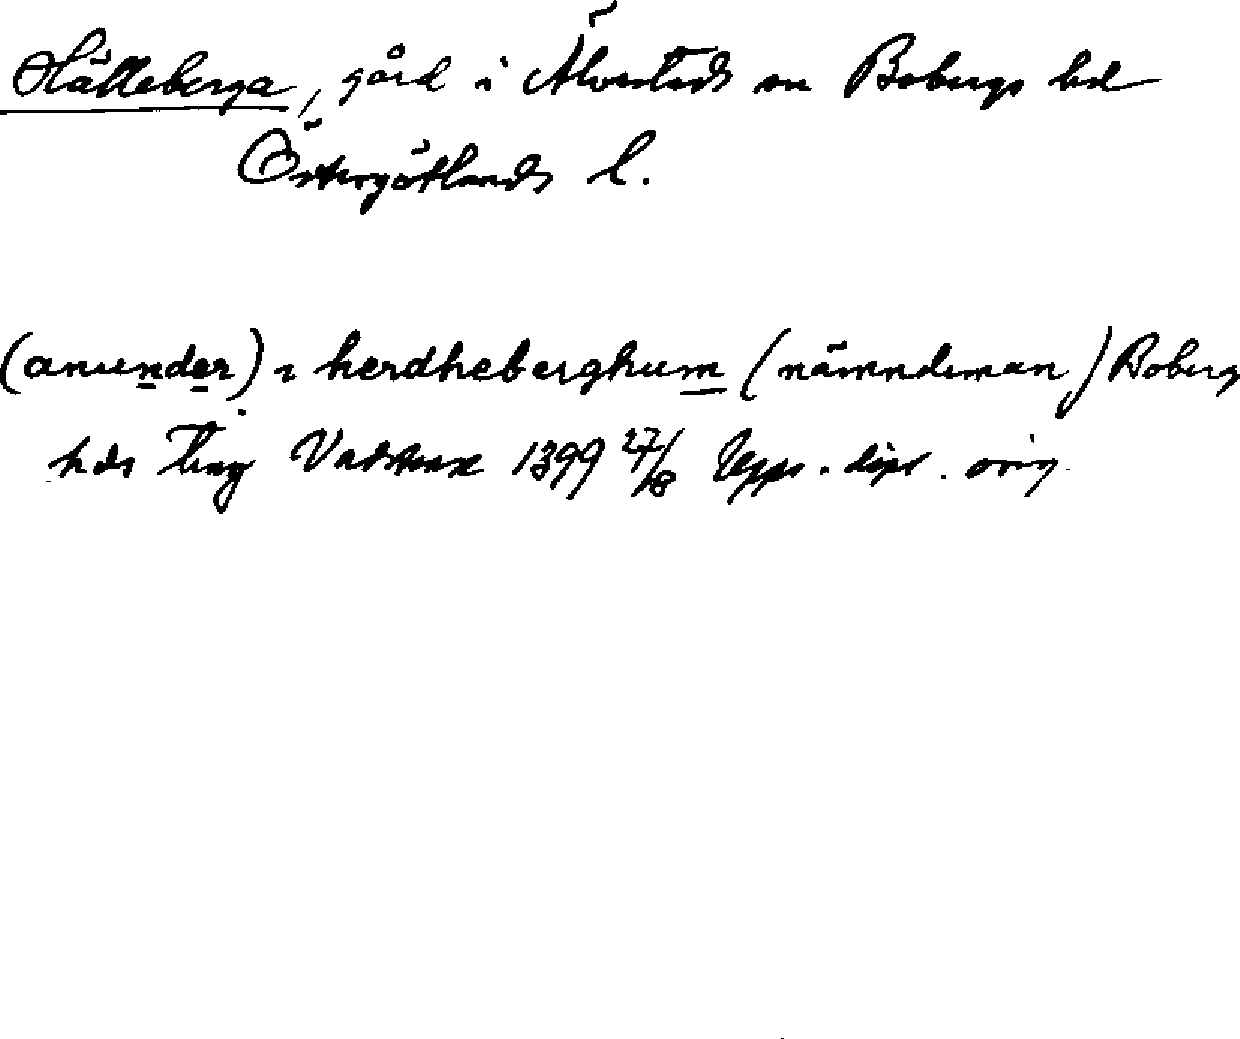 Hälleberga, gård i Älvestads sn Bobergs hd
Östergötlands l.
(anunder) i herdheberghum (nämndeman) Boberg
hds ting Vadstena 1399 27/8 Upps. dipl. orig